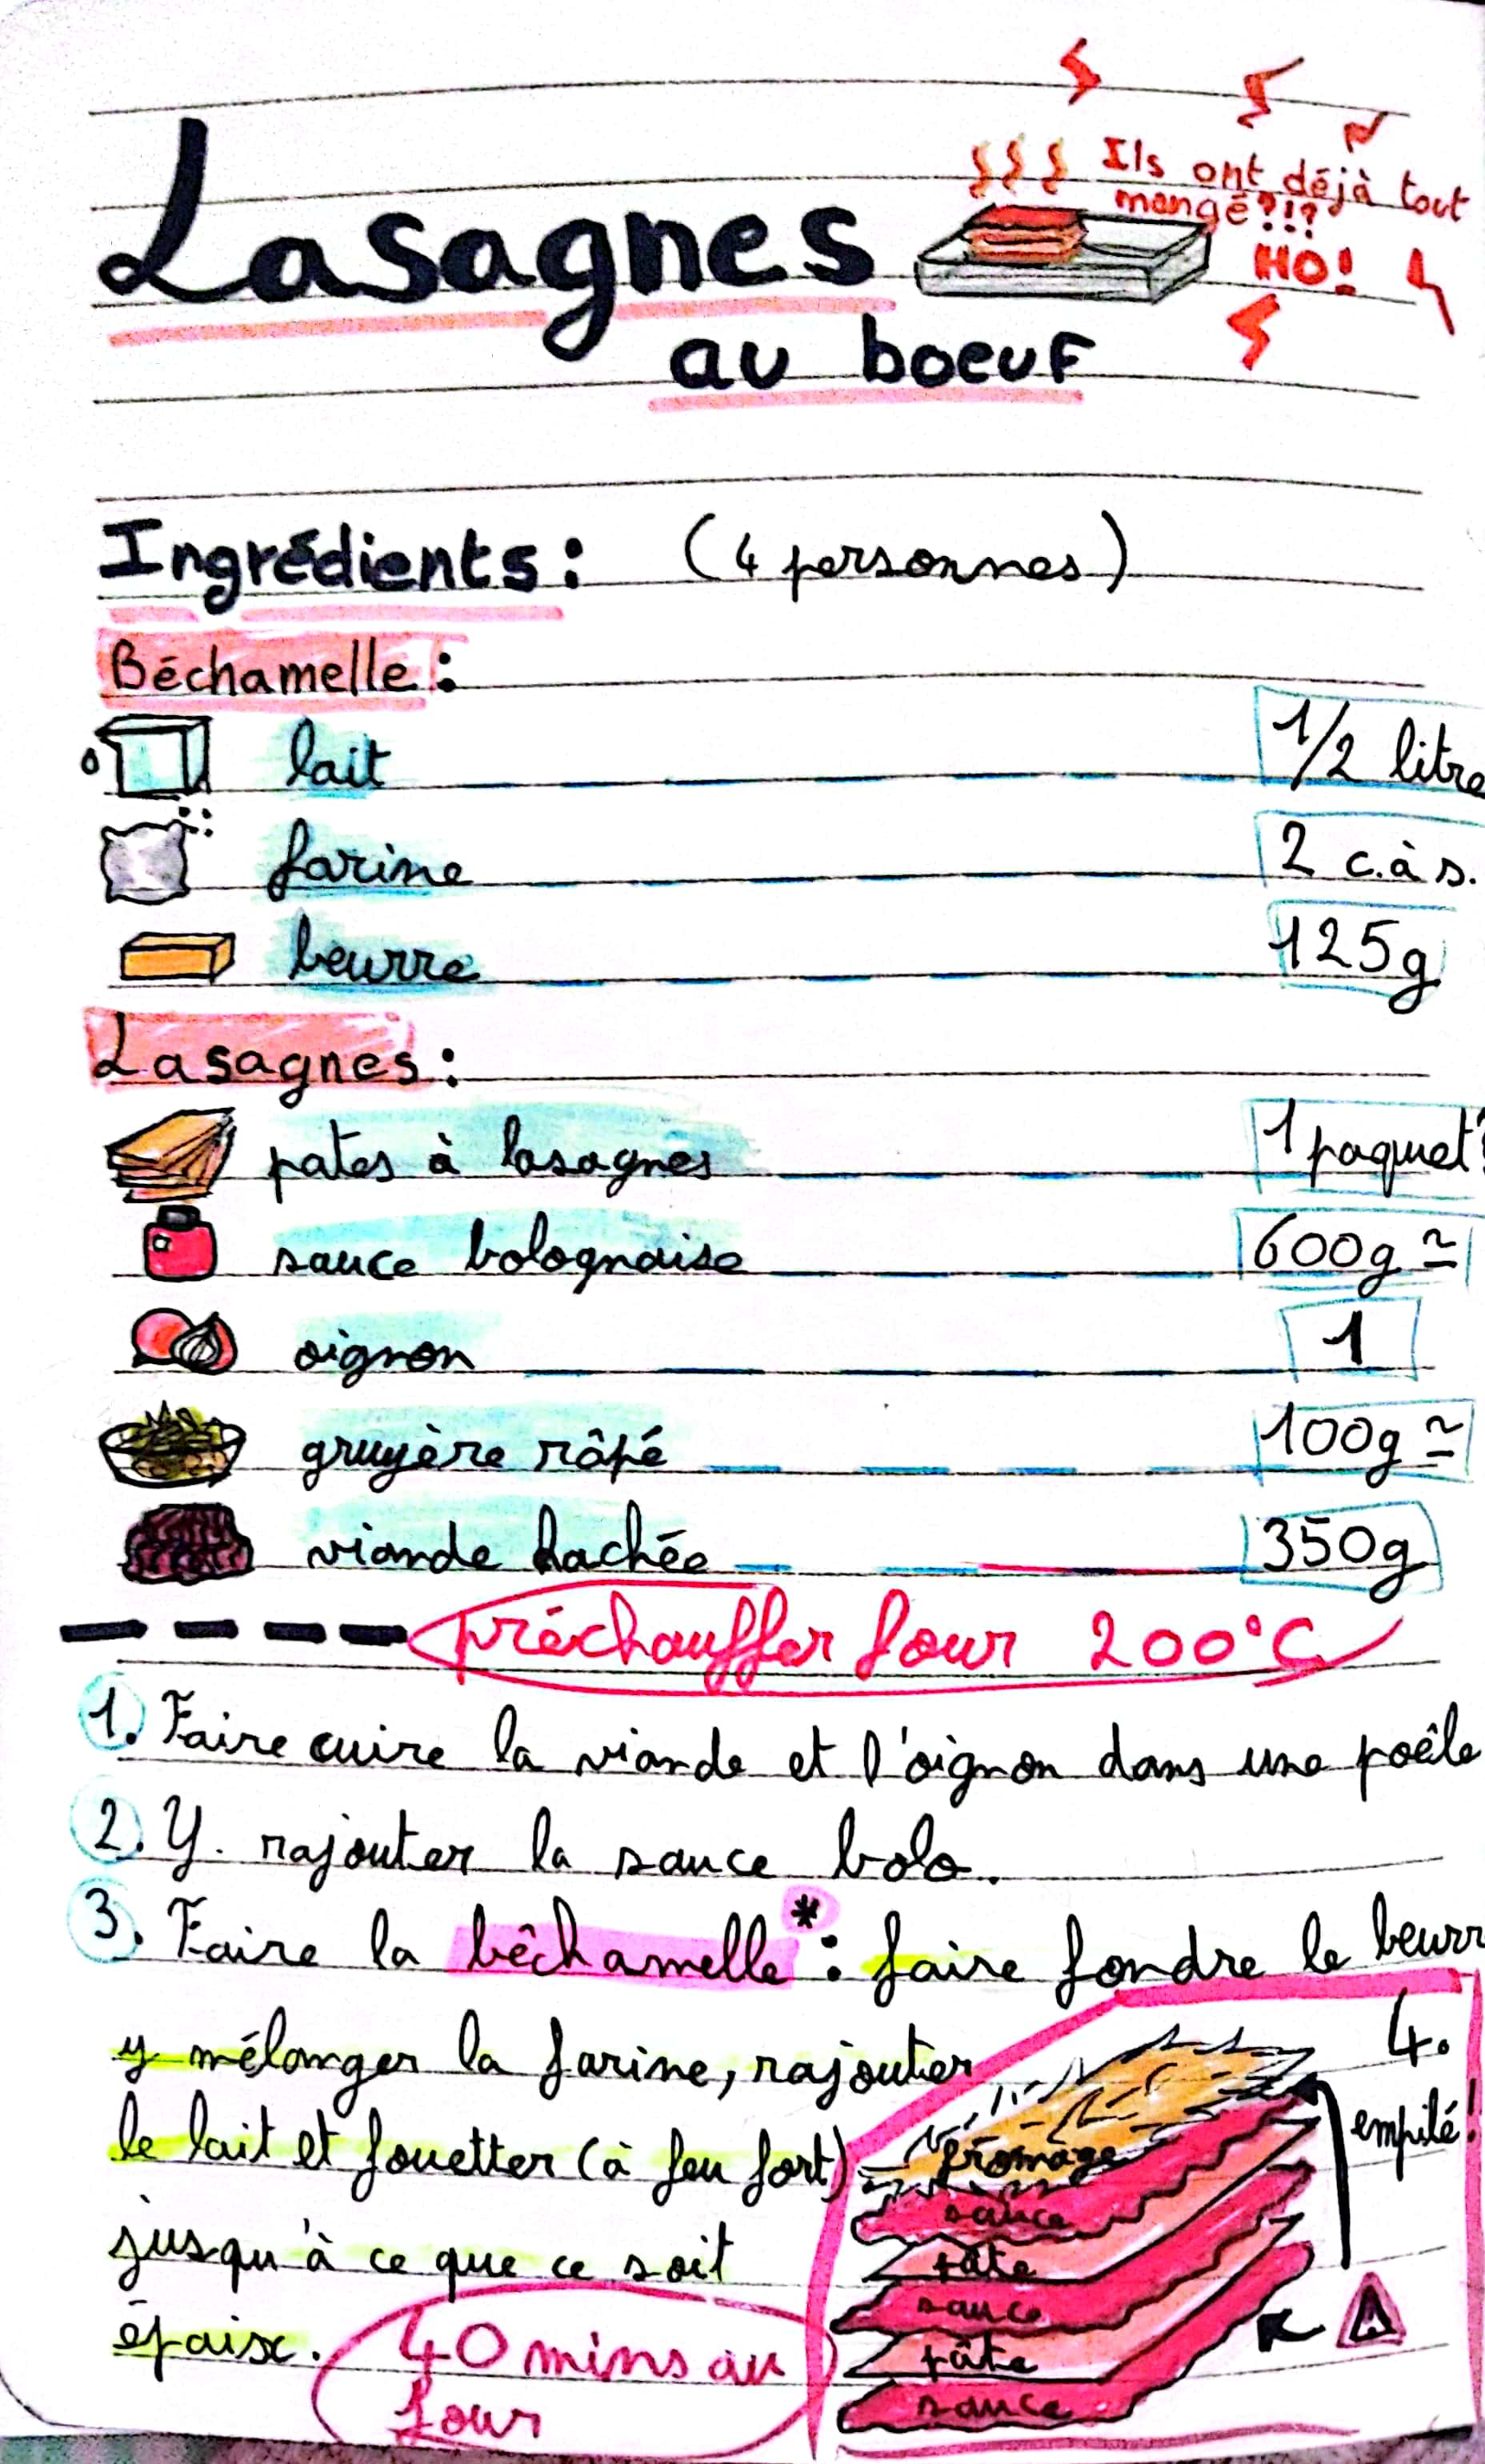 Ils ont déjà tout
mangé?!?
HO!
Lasagnes
au boeuf
Ingrédients : (4 personnes)
Béchamelle :
lait 1/2 litre
farine 2 c.à s.
beurre 125g
Lasagnes :
pates à lasagnes 1 paquet
sauce bolognaise 600g ≃
oignon 1
gruyère râpé 100g ≃
viande hachée 350g
préchauffer four 200°C
1. Faire cuire la viande et l'oignon dans une poêle
2. Y rajouter la sauce bolo.
3. Faire la bêchamelle* : faire fondre le beurr
y mélanger la farine, rajouter
le lait et fouetter (à feu fort)
jusqu'à ce que ce soit
épaisc.
40 mins au
four
4.
empilé!
fromage
sauce
pâte
sauce
pâte
sauce